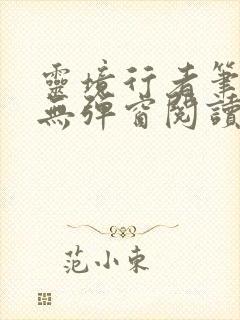 靈境行者筆
無彈窗閱讀
范小東